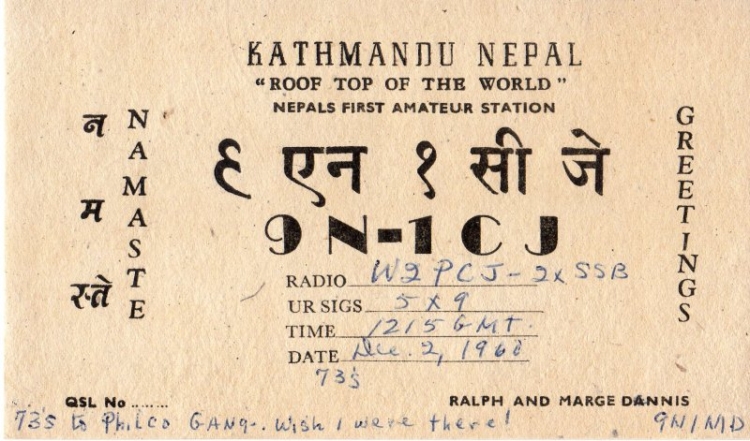 KATHMANDU NEPAL
"ROOF TOP OF THE WORLD"
NEPALS FIRST AMATEUR STATION
नमस्ते
NAMASTE
९ एन १ सी जे
9N-1CJ
GREETINGS
RADIO W2PCJ - 2x SSB
UR SIGS 5 X 9
TIME 1215 GMT.
DATE Dec. 2, 1960
73's
QSL No ........
RALPH AND MARGE DANNIS
73's to Philco GANG. Wish I were there!
9N1MD